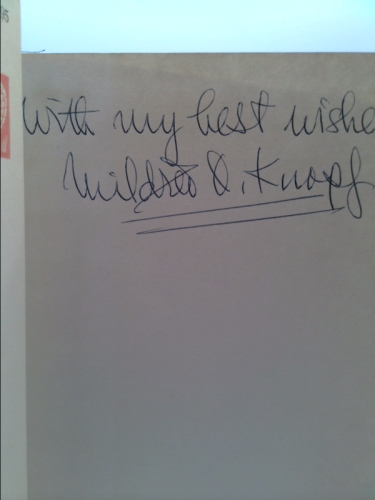 with my best wishe
Mildred O. Knopf